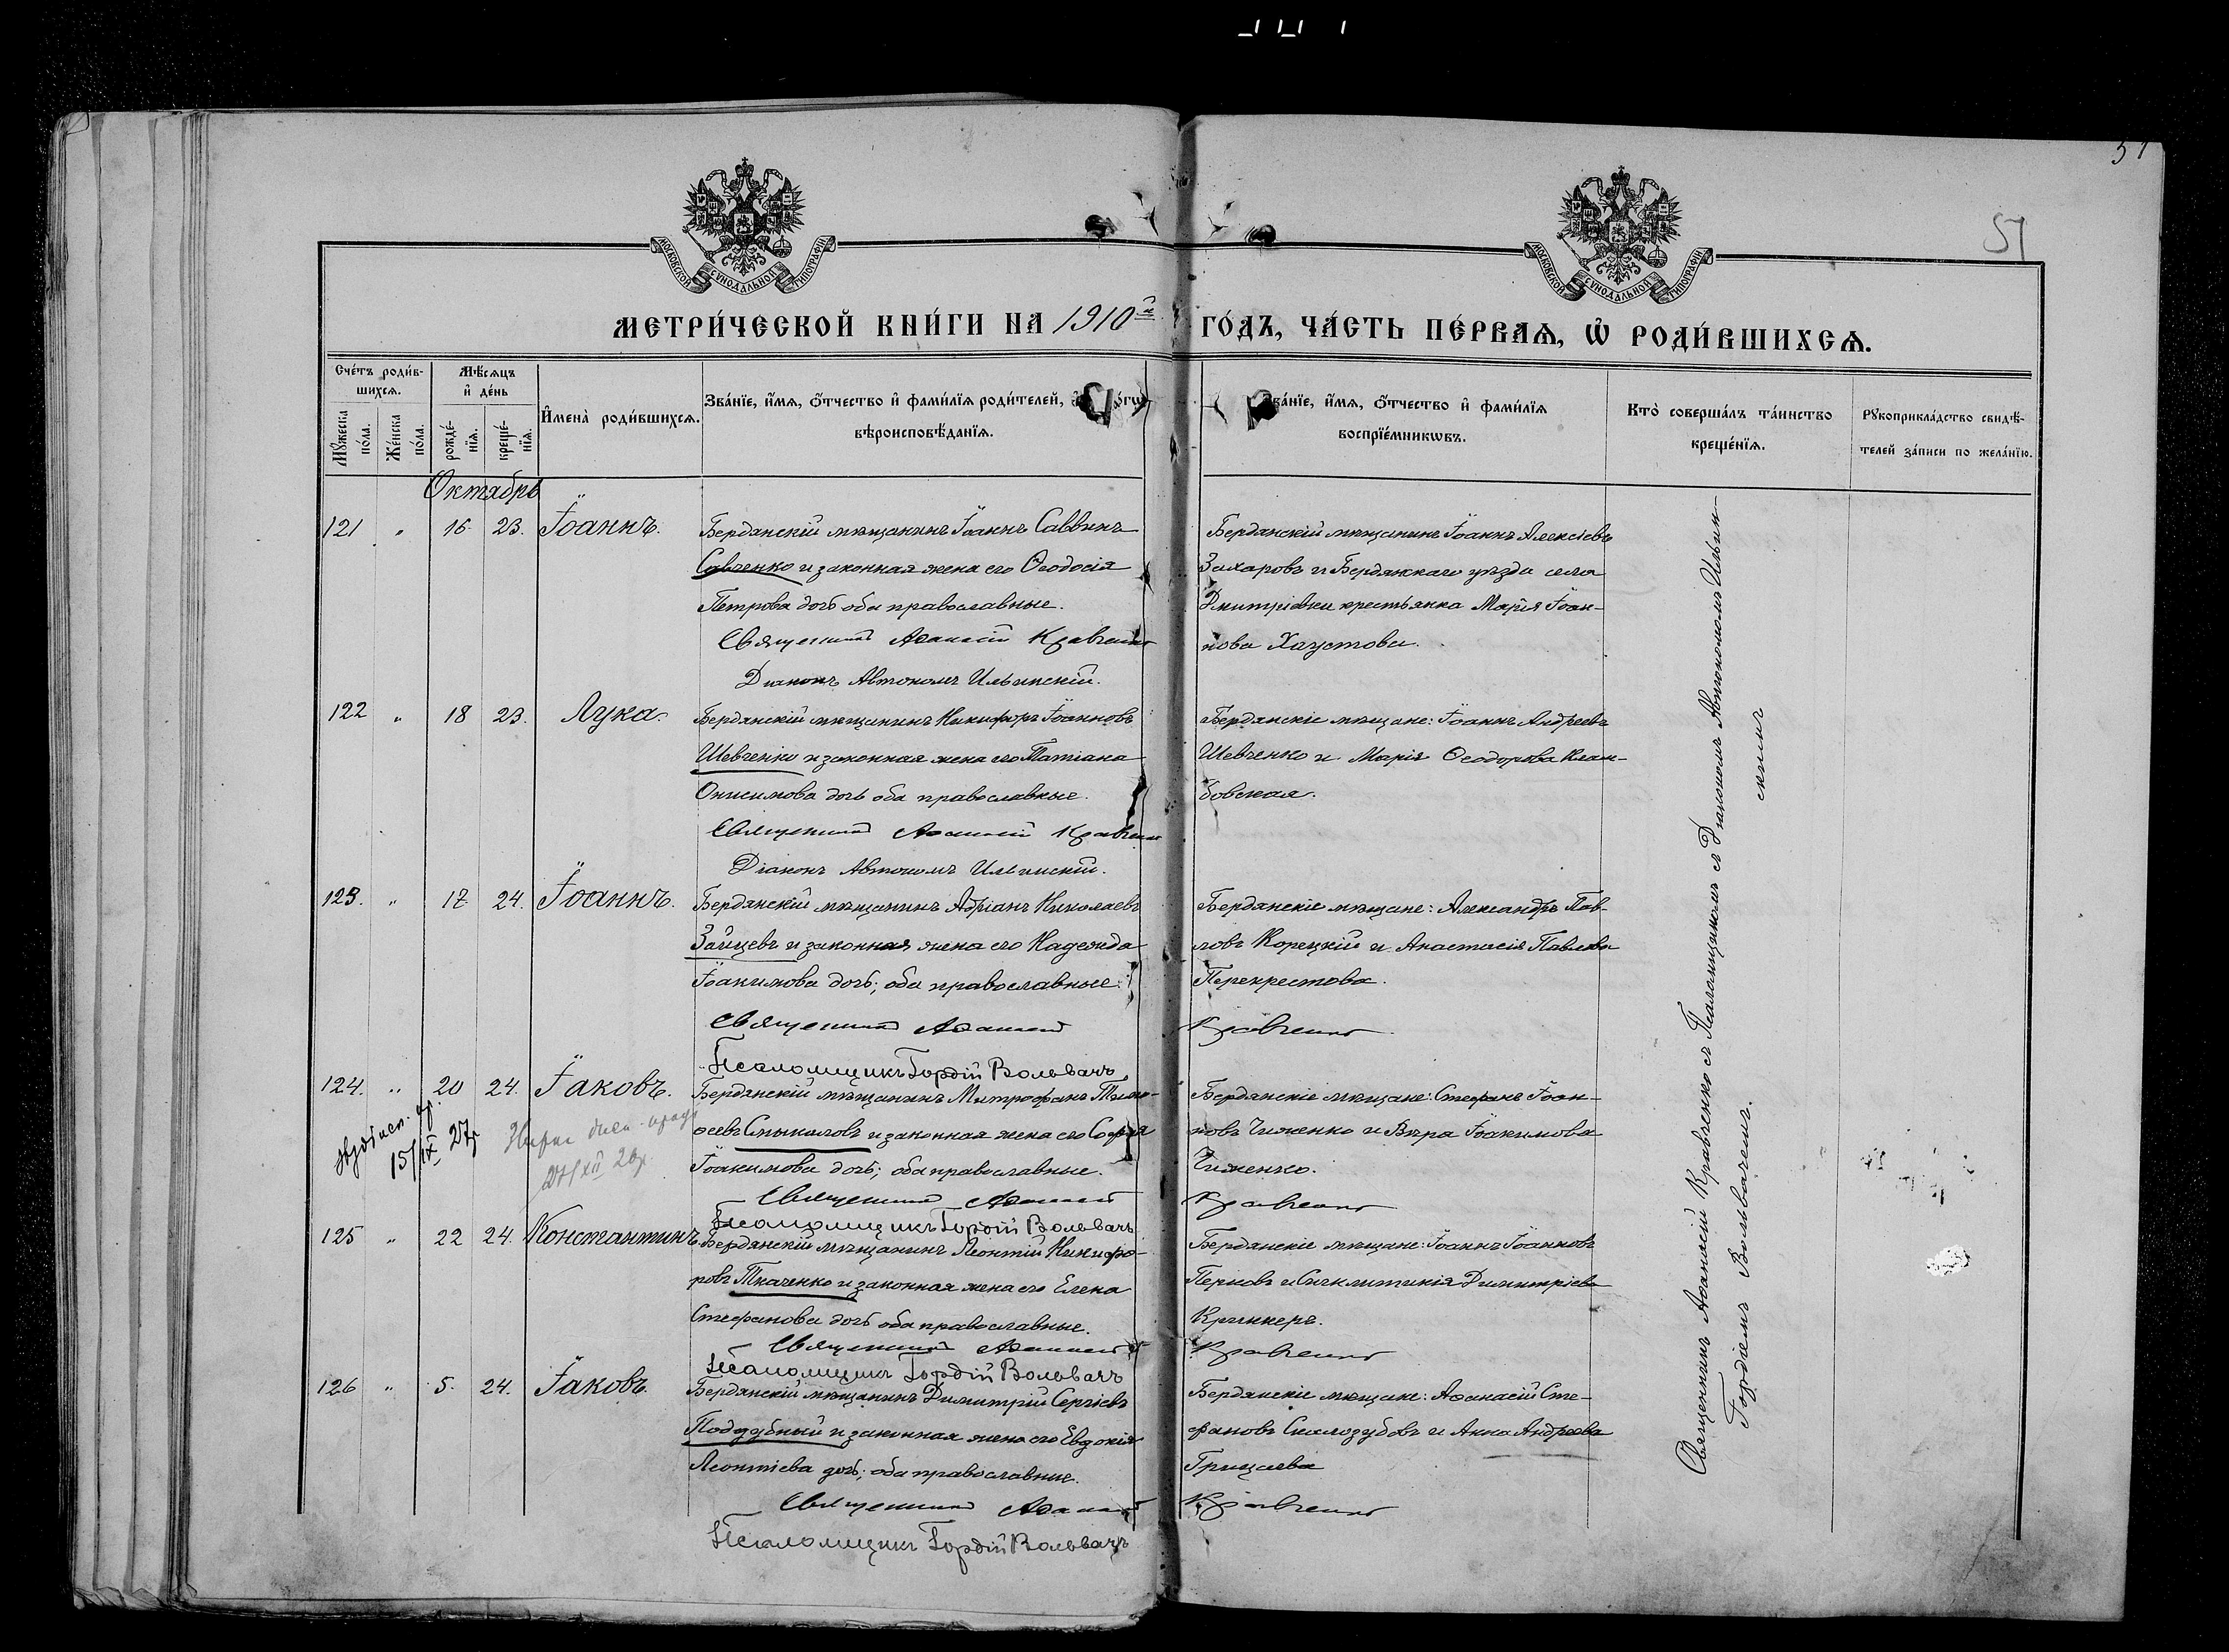 51
51
МОСКОВСКОЙ СѴНОДАЛЬНОЙ ТИПОГРАФІИ
МОСКОВСКОЙ СѴНОДАЛЬНОЙ ТИПОГРАФІИ
МЕТРИ́ЧЕСКОЙ КНИ́ГИ НА 1910й ГО́ДЪ, ЧА́СТЬ ПЕ́РВАѦ, Ѡ҆ РОДИ́ВШИХСѦ.
Сче́тъ роди́в-
шихсѧ.
Мꙋ́жеска
по́ла.
Же́нска
по́ла.
Мѣ́сѧцъ
и҆ де́нь
рожде́-
нїѧ.
креще́-
нїѧ.
И҆мена̀ роди́вшихсѧ.
Зва́нїе, и҆́мѧ, ѻ҆́тчество и҆ фами́лїѧ роди́телей,
вѣроисповѣ́данїѧ.
Зва́нїе, и҆́мѧ, ѻ҆́тчество и҆ фами́лїѧ
воспрїе́мникѡвъ.
Кто̀ соверша́лъ та́инство
креще́нїѧ.
Рꙋкоприкла́дство свидѣ́-
телей за́писи по жела́нїю.
Октябрь
121 " 16 23. Іоаннъ.
Бердянскій мѣщанинъ Іоаннъ Саввинъ
Савченко и законная жена его Ѳеодосія
Петрова дочь оба православные.
Священникъ Аѳанасій Кравченко
Діаконъ Автономъ Ильинскій.
Бердянскій мѣщанинъ Іоаннъ Алексіевъ
Захаровъ и Бердянскаго уѣзда села
Дмитріевки крестьянка Марія Іоан-
нова Хаустова.
122 " 18 23. Лука.
Бердянскій мѣщанинъ Никифоръ Іоанновъ
Шевченко и законная жена его Татіана
Онисимова дочь оба православные.
Священникъ Аѳанасій Кравченко
Діаконъ Автономъ Ильинскій.
Бердянскіе мѣщане: Іоаннъ Андреевъ
Шевченко и Марія Ѳеодорова
бовская.
123. " 17 24. Іоаннъ.
Бердянскій мѣщанинъ Адріанъ Николаевъ
Зайцевъ и законная жена его Надежда
Іоакимова дочь; оба православные.
Священникъ Аѳанасій Кравченко
Псаломщикъ Гордій Вольвачъ
Бердянскіе мѣщане: Александръ Пав-
ловъ Корецкій и Анастасія Павлова
Перекрестова.
124. " 20 24. Іаковъ.
15/IX 27
27/XII
Бердянскій мѣщанинъ Митрофанъ Тимо-
ѳеевъ и законная жена его Софія
Іоакимова дочь; оба православные.
Священникъ Аѳанасій Кравченко
Псаломщикъ Гордій Вольвачъ
Бердянскіе мѣщане: Стефанъ Іоан-
новъ Чиженко и Вѣра Іоакимова
Чиженко.
125 " 22 24. Константинъ.
Бердянскій мѣщанинъ Леонтій Никифо-
ровъ Ткаченко и законная жена его Елена
Стефанова дочь оба православные.
Священникъ Аѳанасій Кравченко
Псаломщикъ Гордій Вольвачъ
Бердянскіе мѣщане: Іоаннъ Іоанновъ
и Синклитикія Димитріева
126 " 5. 24. Іаковъ.
Бердянскій мѣщанинъ Димитрій Сергіевъ
Поддубный и законная жена его Евдокія
Леонтіева дочь; оба православные.
Священникъ Аѳанасій Кравченко
Псаломщикъ Гордій Вольвачъ
Бердянскіе мѣщане: Аѳанасій Сте-
фановъ Скалозубовъ и Анна Андреева
Грицаева
Священникъ Аѳанасій Кравченко съ Псаломщикомъ съ Діакономъ Автономомъ Ильин-
скимъ
Гордіемъ Вольвачемъ.